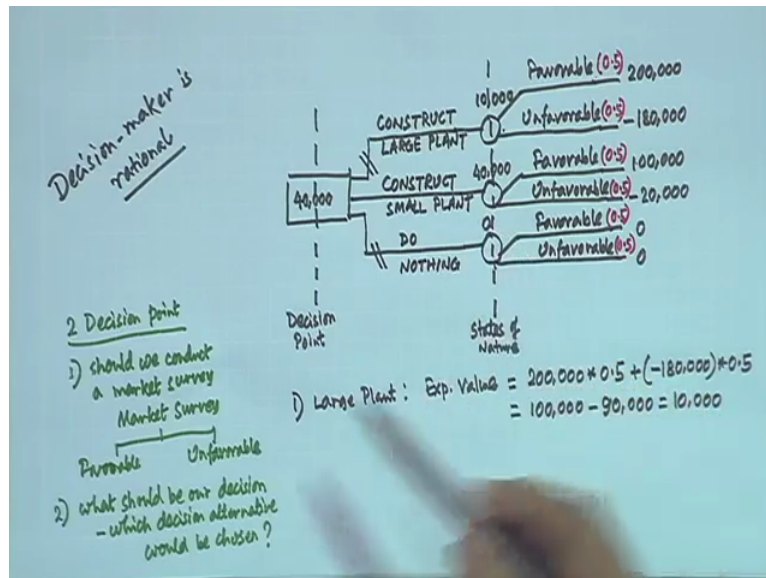 Decision-maker is
rational
CONSTRUCT
LARGE PLANT
10,000
1
Favorable (0.5) 200,000
Unfavorable (0.5) -180,000
40,000
CONSTRUCT
SMALL PLANT
40,000
1
Favorable (0.5) 100,000
Unfavorable (0.5) -20,000
DO
NOTHING
0
1
Favorable (0.5) 0
Unfavorable (0.5) 0
Decision
Point
States of
Nature
2 Decision point
1) should we conduct
a market survey
Market Survey
Favorable Unfavorable
2) what should be our decision
- which decision alternative
would be chosen?
1) Large Plant: Exp. Value = 200,000 * 0.5 + (-180,000) * 0.5
= 100,000 - 90,000 = 10,000